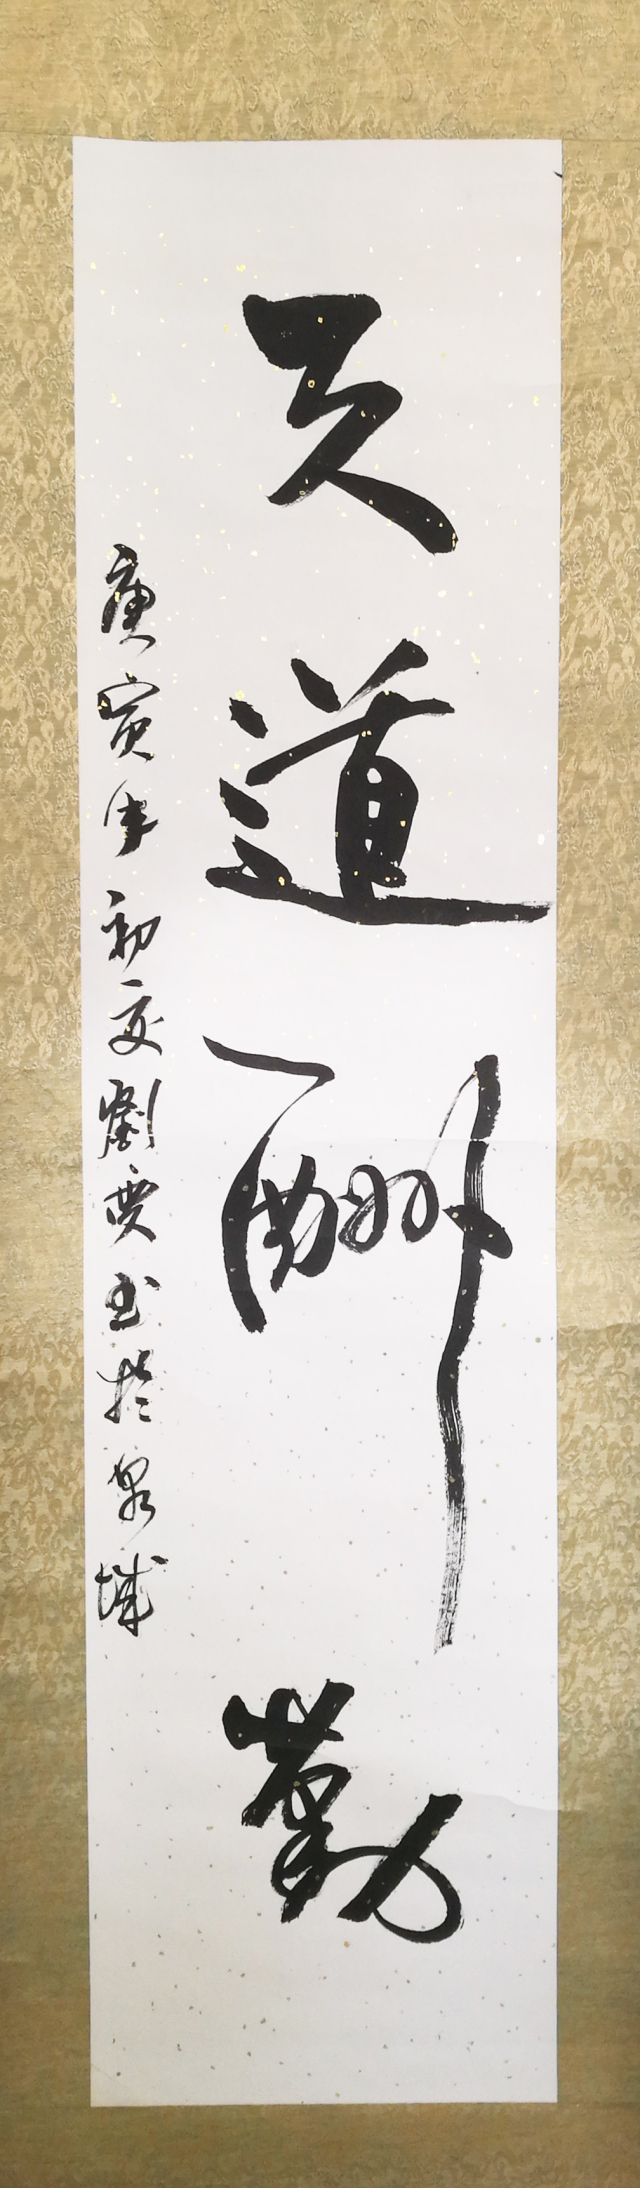 天道酬勤
庚寅年初夏劉奭书於泉城